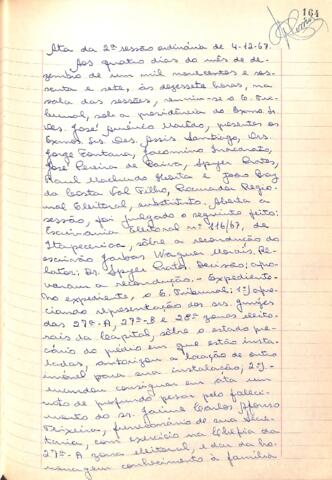 164
Ata da 2ª sessão ordinária de 4-12-67.
Aos quatro dias do mês de de-
zembro de um mil novecentos e ses-
senta e sete, às dezessete horas, na
sala das sessões, reuniu-se o E. Tri-
bunal, sob a presidência do Exmo. Sr.
Des. José Américo Macêdo, presentes os
Exmos. Srs. Des. Assis Santiago, Drs.
Jorge Fontana, Jacomino Inacarato,
José Pereira de Paiva, Speyer Prates,
Raul Machado Horta e João Braz
da Costa Val Filho, Procurador Regio-
nal Eleitoral, substituto. Aberta a
sessão, foi julgado o seguinte feito:
Escrivania Eleitoral nº 116/67, de
Itapecerica, sôbre a recondução do
escrivão Jarbas Wagner Morais. Re-
lator: Dr. Speyer Prates. Decisão: apro-
varam a recondução. - Expediente.
No expediente, o E. Tribunal: 1) apre-
ciando representação dos srs. juízes
das 27ª-A, 27ª-B e 28ª zonas eleito-
rais da Capital, sôbre o estado pre-
cário do prédio em que estão insta-
ladas, autorizou a locação de outro
imóvel para sua instalação; 2)
mandou consignar em ata um
voto de profundo pesar pelo faleci-
mento do sr. Jaime Carlos Afonso
Teixeira, funcionário de sua Secre-
taria, com exercício na Chefia da
27ª-A zona eleitoral, e dar da ho-
menagem conhecimento à família